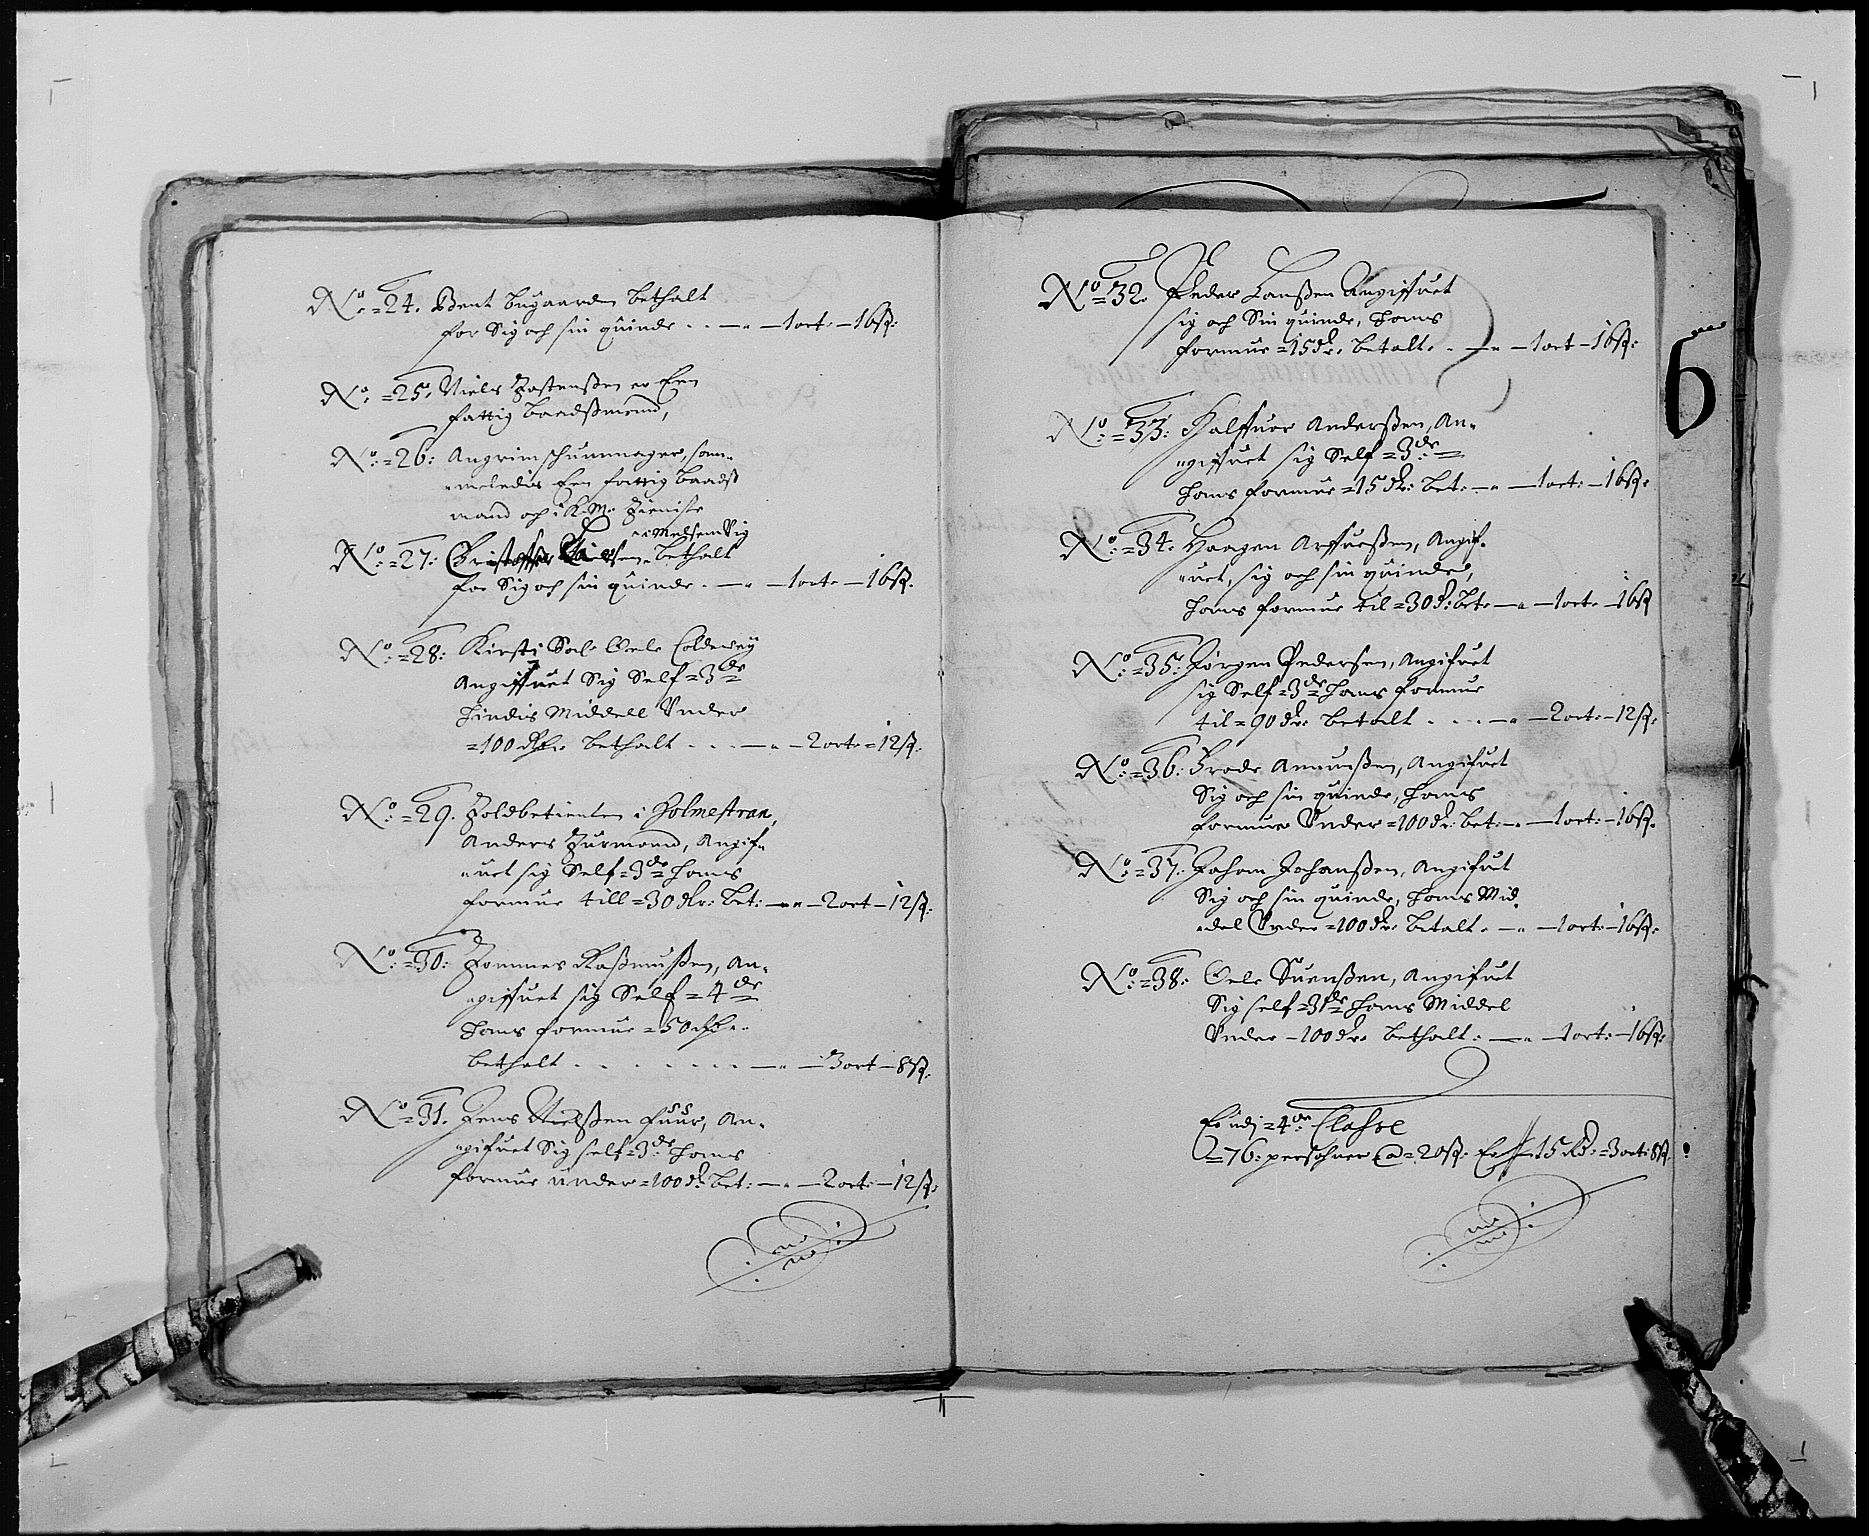 No: =24. Bent Bugaarden bethalt
for Sig och sin quinde . . — „ — 1 ort — 16 sk:
No: =25: Niels Tostenssen er Een
fattig Baadssmand,
No: =26: Angrim schuemager, sam„
„meledis Een fattig Baadss
mand och i K: M: Tieniste
No: =27: Christoffer bethalt
for Sig och sin quinde . — „ — 1 ort — 16 sk.
No: =28: Kirsti Sal: Oele Coldevey
Angiffuet Sig Self =3de
Hindis Middell Under
=100 dlr: bethalt . . . — „ — 2 ort =12 sk:
No: =29. Toldbetienten i Holmestran,
Anders Turmand, Angif„
„uet sig Self =3de Hans
formue till =30 dlr: bet: — „ — 2 ort — 12 sk:
No: =30: Tommes Rassmussen, An„
„giffuet sig Self =4de
Hans formue =50 dlr „.
bethalt . . . . . . . — „ — 3 ort — 8 sk:
No: =31. Jens Nielssen fuur, An„
„gifuet Sig self =3de Hans
formue under =100 dr: bet: — „ — 2 ort — 12 sk:
No: =32. Peder Lanssen Angiffuet
sig och Sin quinde, Hans
formue =15 dr: betalt . — „ — 1 ort — 16 sk:
6
No: =33: Halffuor Anderssen, An„
„giffuet sig Self =3de
Hans formue =15 dr: bet: — „ — 1 ort: — 16 sk:
No: =34: Haagen Arffuessen, Angif„
„uet, sig och sin quinde,
Hans formue til =30 d: bet: — „ — 1 ort: — 16 sk
No: =35: Jørgen Pedersen, Angifuet
sig Self =3de Hans formue
til =90 dr: betalt . . . — „ — 2 ort — 12 sk:
No: =36: Frode Amunssen, Angifuet
Sig och sin quinde, Hans
formue Under =100 dr: bet: — „ — 1 ort: — 16 sk.
No: =37. Johan Johanssen, Angifuet
Sig och sin quinde, Hans Mid„
„del Under =100 dr: betalt . — „ — 1 ort: — 16 sk:
No: =38: Oele Suenssen, Angifuet
Sig self =3de Hans Middel
Under =100 dr: bethalt: — „ — 1 ort: — 16 sk:
Er udj =4de Classe
=76: persohner a =20 sk: Er =15 Rd: =3 ort: 8 sk: